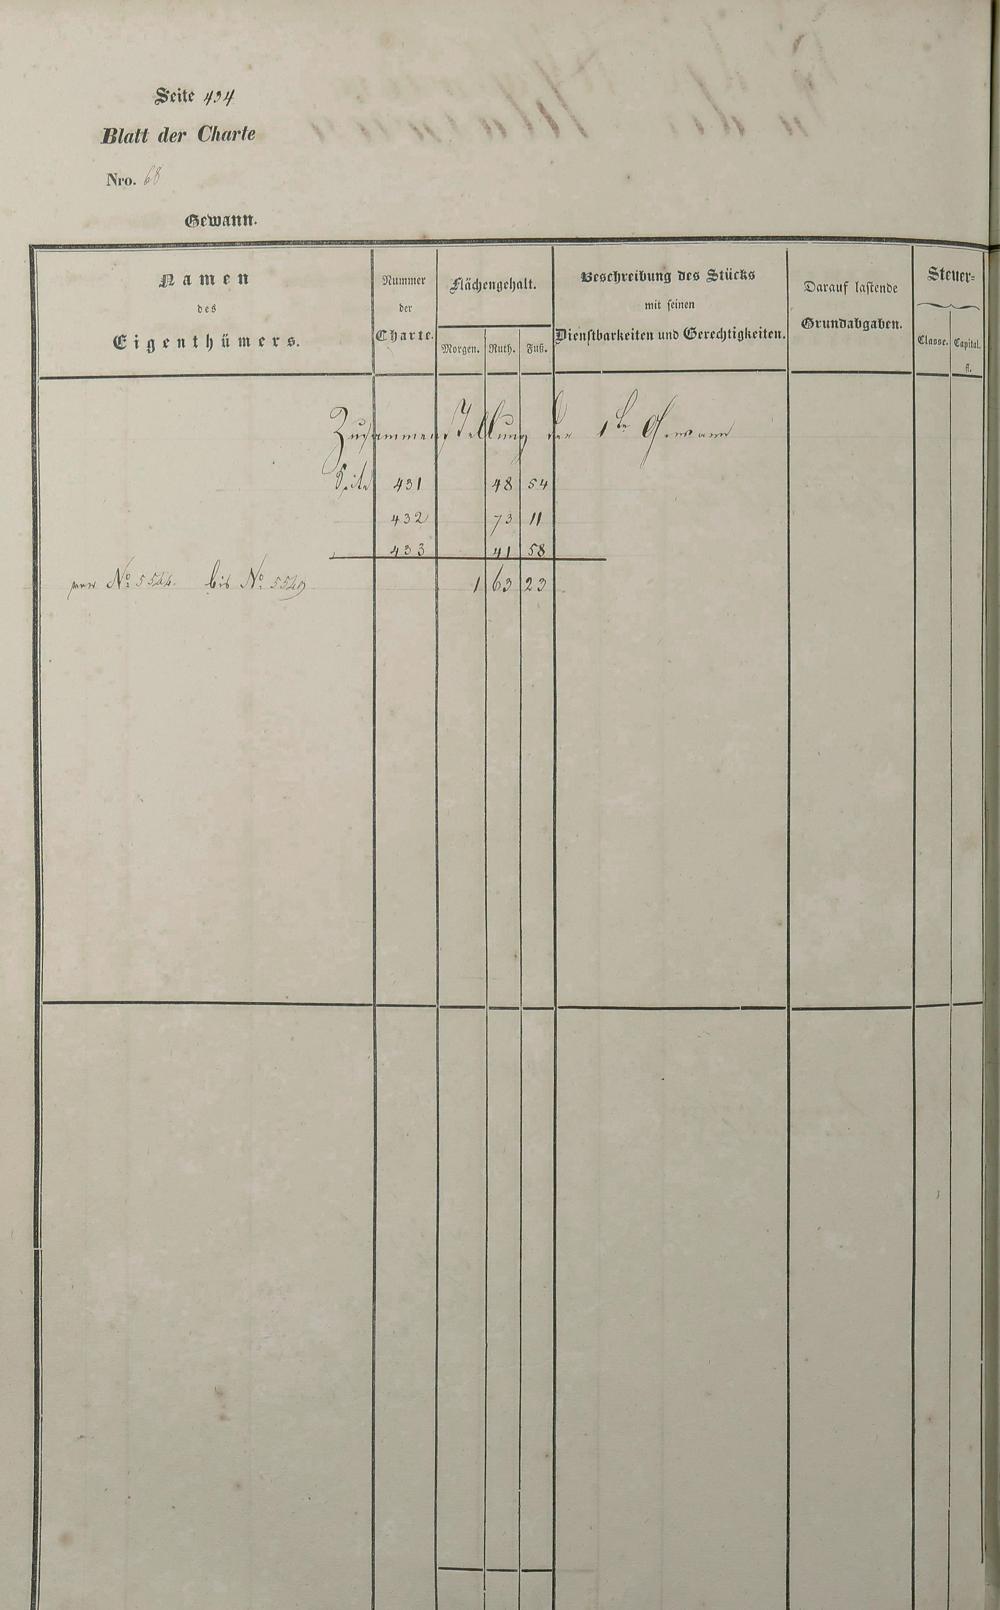 Seite 434
Blatt der Charte
Nro. 68
Gewann.
Namen des Eigenthümers.
Nummer der Charte.
Flächengehalt.
Morgen. Ruth. Fuß.
Beschreibung des Stücks mit seinen Dienstbarkeiten und Gerechtigkeiten.
Darauf lastende Grundabgaben.
Steuer=
Classe. Capital. fl.
Zusammenstellung der 1te Gewann
Seite 431 48 54
432 73 11
433 41 58
von No 5524. bis No 5549 1 63 23